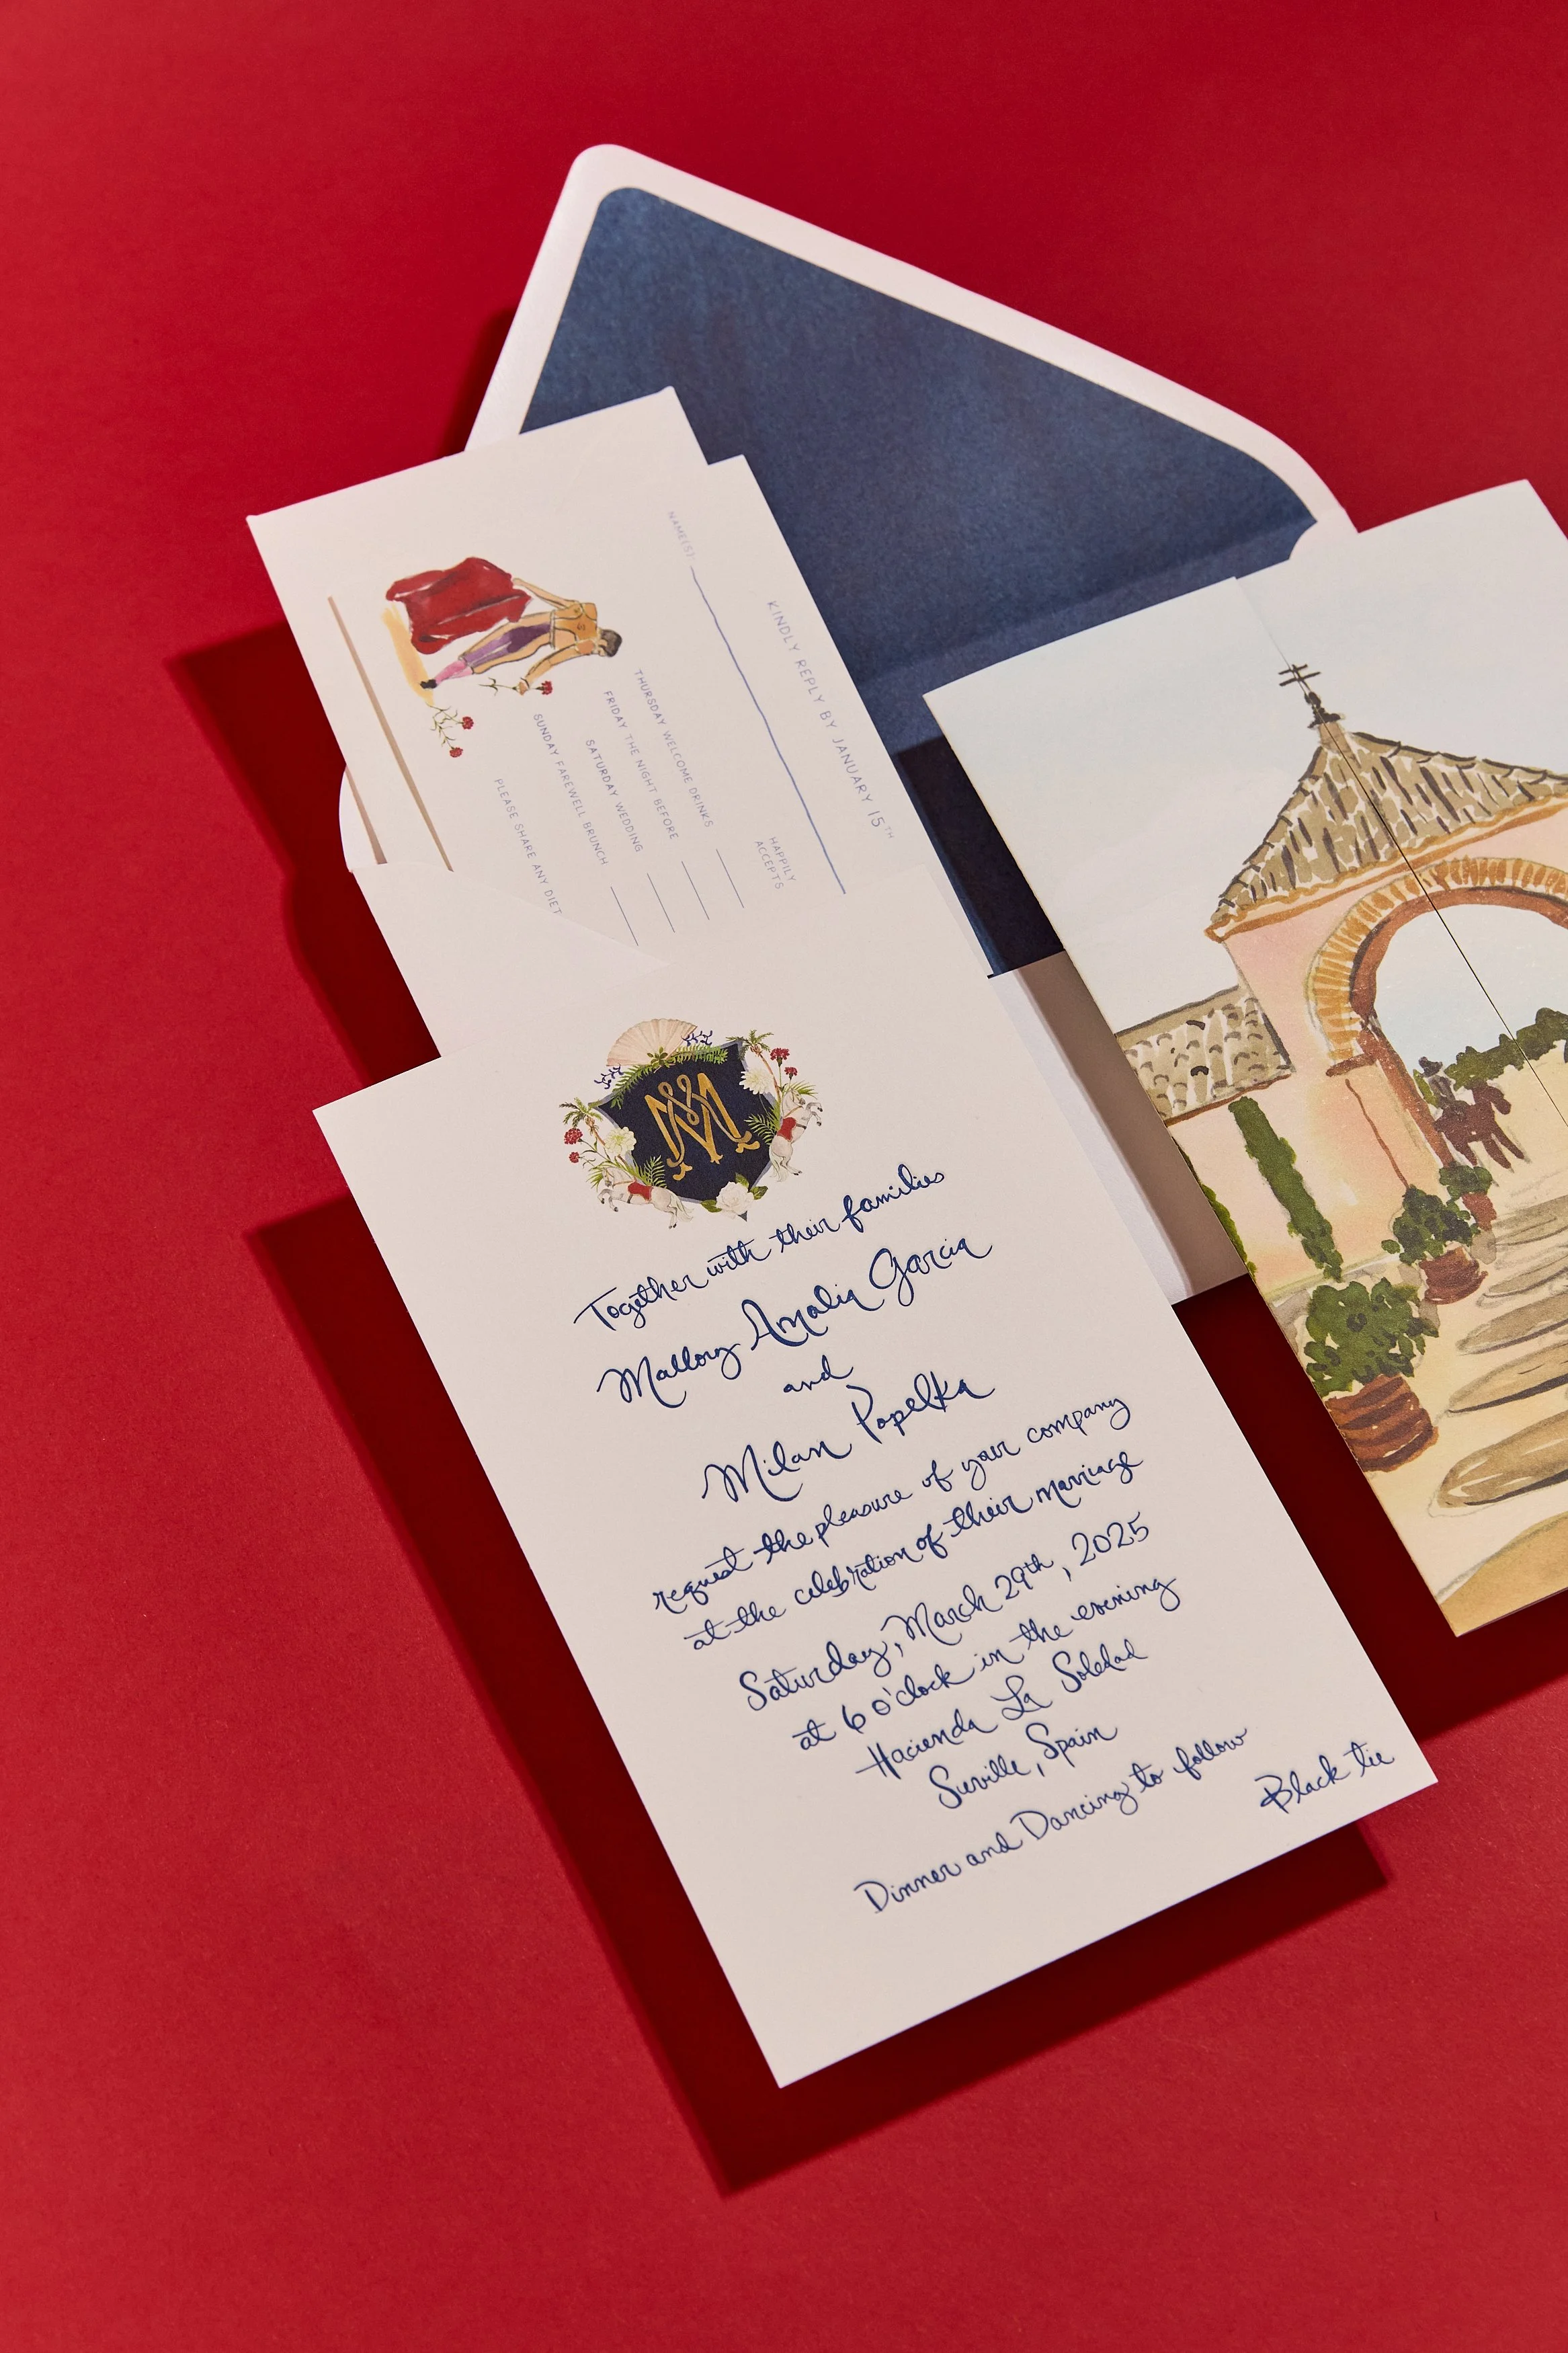 Together with their families
Mallory Amalia Garcia
and
Milan Popelka
request the pleasure of your company
at the celebration of their marriage
Saturday, March 29th, 2025
at 6 o'clock in the evening
Hacienda La Soledad
Seville, Spain
Dinner and Dancing to follow
Black tie
KINDLY REPLY BY JANUARY 15TH
NAME(S):
HAPPILY
ACCEPTS
THURSDAY WELCOME DRINKS
FRIDAY THE NIGHT BEFORE
SATURDAY WEDDING
SUNDAY FAREWELL BRUNCH
PLEASE SHARE ANY DIET